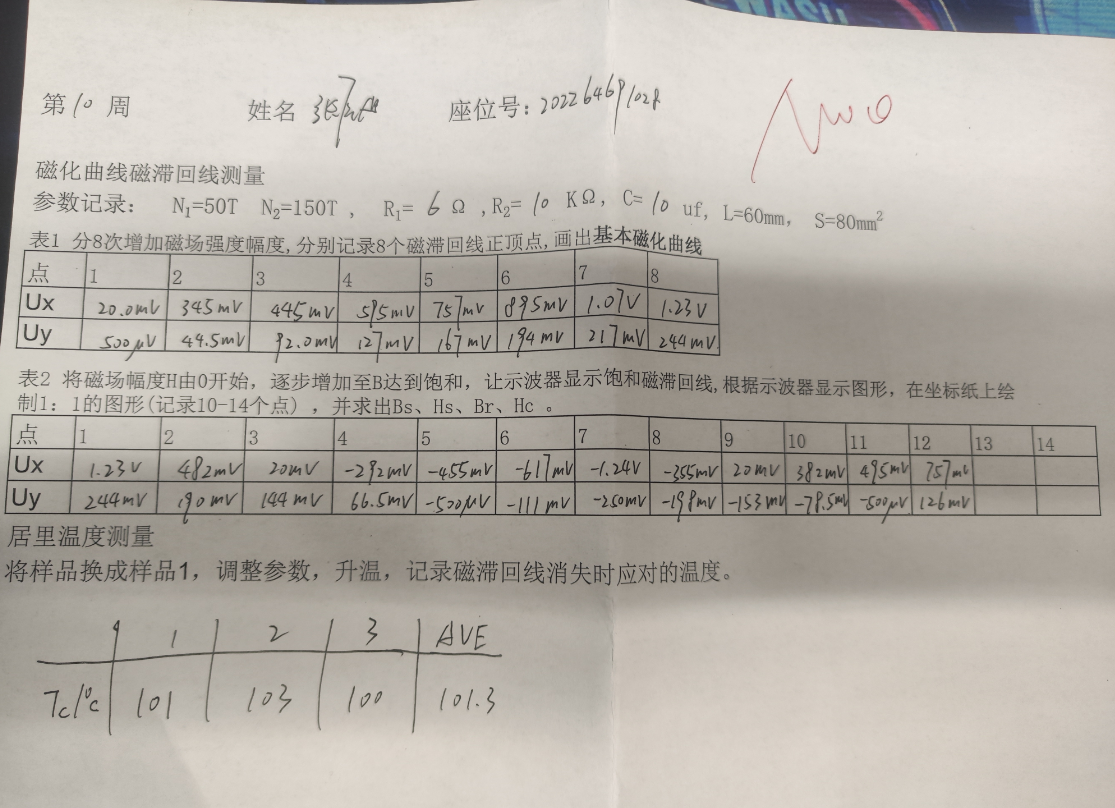 NASH
第10周 姓名 张 座位号: 202264691028
磁化曲线磁滞回线测量
参数记录: N₁=50T N₂=150T , R₁= 6 Ω ,R₂= 10 KΩ, C= 10 uf, L=60mm, S=80mm²
表1 分8次增加磁场强度幅度,分别记录8个磁滞回线正顶点,画出基本磁化曲线
点 1 2 3 4 5 6 7 8
Ux 20.0mV 345mV 445mV 595mV 757mV 895mV 1.07V 1.23V
Uy 500μV 44.5mV 92.0mV 127mV 167mV 194mV 217mV 244mV
表2 将磁场幅度H由0开始，逐步增加至B达到饱和，让示波器显示饱和磁滞回线,根据示波器显示图形，在坐标纸上绘
制1：1的图形(记录10-14个点) ，并求出Bs、Hs、Br、Hc 。
点 1 2 3 4 5 6 7 8 9 10 11 12 13 14
Ux 1.23V 482mV 20mV -292mV -455mV -617mV -1.24V -355mV 20mV 382mV 495mV 757mV
Uy 244mV 190mV 144mV 66.5mV -500μV -111mV -250mV -198mV -153mV -78.5mV -500μV 126mV
居里温度测量
将样品换成样品1，调整参数，升温，记录磁滞回线消失时应对的温度。
1 2 3 AVE
Tc/°C 101 103 100 101.3